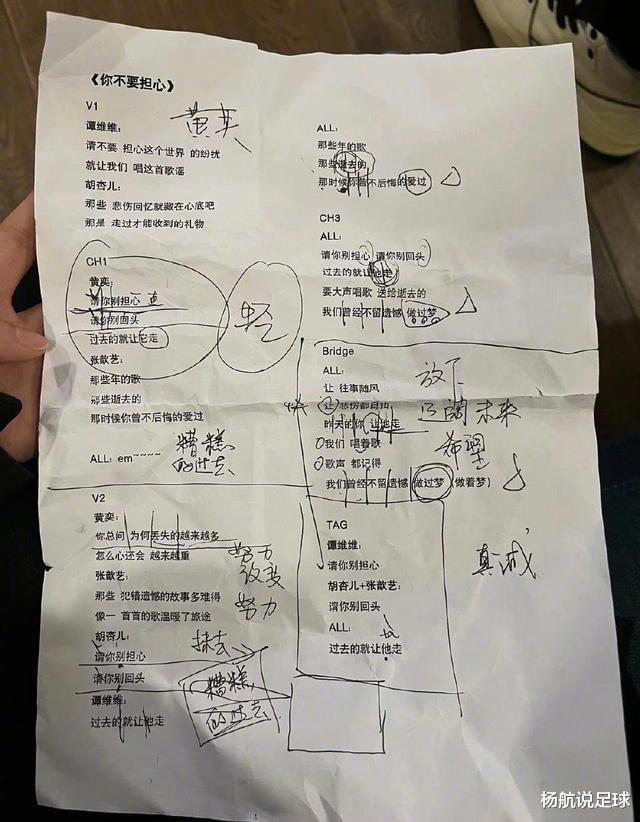 《你不要担心》
V1
谭维维：
黄奕
请不要 担心这个世界 的纷扰
就让我们 唱这首歌谣
胡杏儿：
那些 悲伤回忆就藏在心底吧
那是 走过才能收到的礼物
CH1
黄奕：
请你别担心
请你别回头
过去的就让它走
轻
张歆艺：
那些年的歌
那些逝去的
那时候你曾不后悔的爱过
ALL：em~~~~
糟糕
的过去
V2
黄奕：
你总问 为何丢失的越来越多
怎么心还会 越来越重
努力
改变
张歆艺：
那些 犯错遗憾的故事多难得
努力
像一 首首的歌温暖了旅途
胡杏儿：
抹去
请你别担心
请你别回头
糟糕
的过去
谭维维：
过去的就让他走
ALL：
那些年的歌
那些逝去的
那时候你曾不后悔的爱过
CH3
ALL：
请你别担心 请你别回头
过去的就让他走
要大声唱歌 送给逝去的
我们曾经不留遗憾 做过梦
Bridge
ALL：
放下
让 往事随风
让 悲伤都自由
未来
昨天的你 让他走
我们 唱着歌
希望
歌声 都记得
我们曾经不留遗憾 做过梦（做着梦）
TAG
谭维维：
请你别担心
真诚
胡杏儿+张歆艺：
请你别回头
ALL：
过去的就让他走
杨航说足球